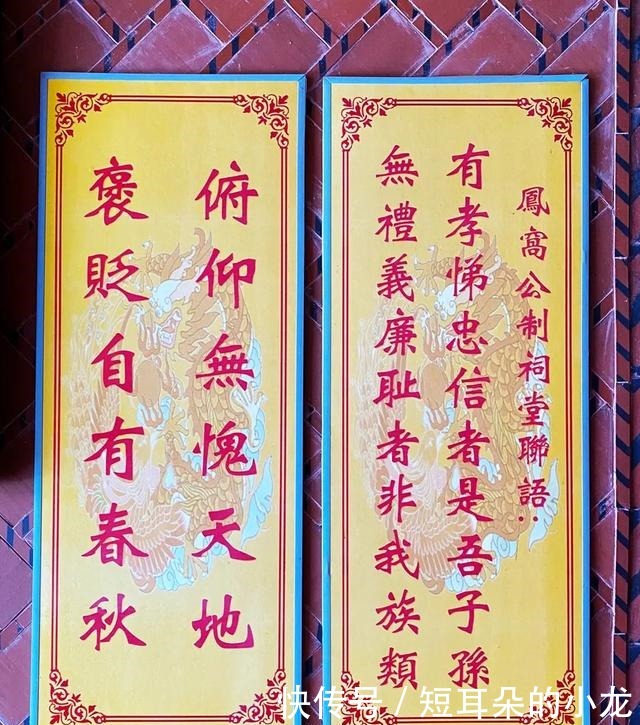 鳳窩公制祠堂聯語：
有孝悌忠信者是吾子孫
無禮義廉耻者非我族類
俯仰無愧天地
褒貶自有春秋
快传号/短耳朵的小龙